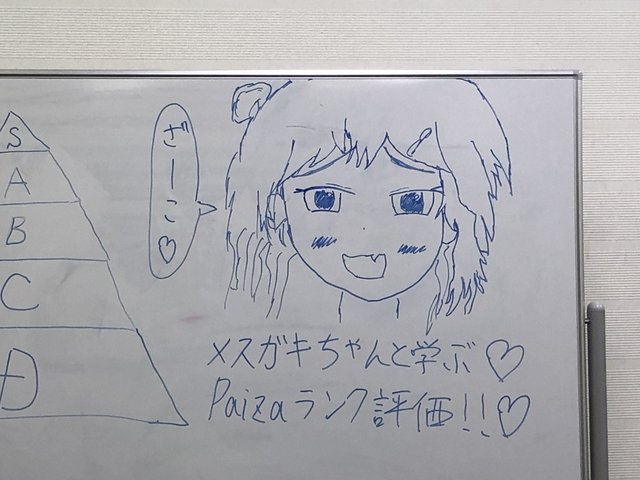 S
A
B
C
D
ざーこ♡
メスガキちゃんと学ぶ♡
Paizaランク評価!!♡